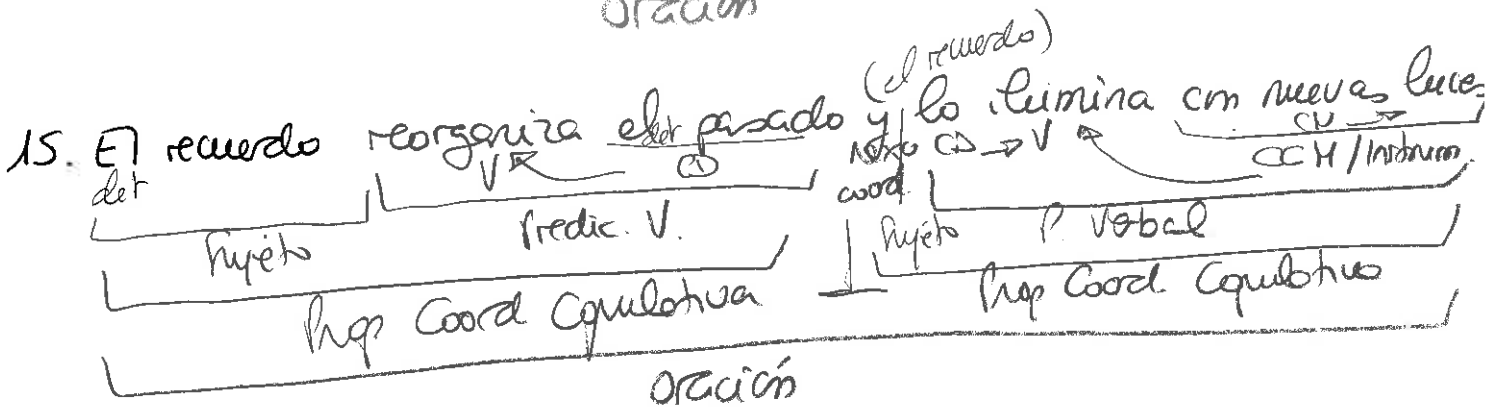 oración
(el recuerdo)
15. El recuerdo reorganiza el pasado y lo ilumina con nuevas luces
det V det CD nexo coord. CD → V CN CCM/Instrum.
Sujeto Predic. V. Sujeto P. Verbal
Prop Coord Copulativa Prop Coord. Copulativa
oración